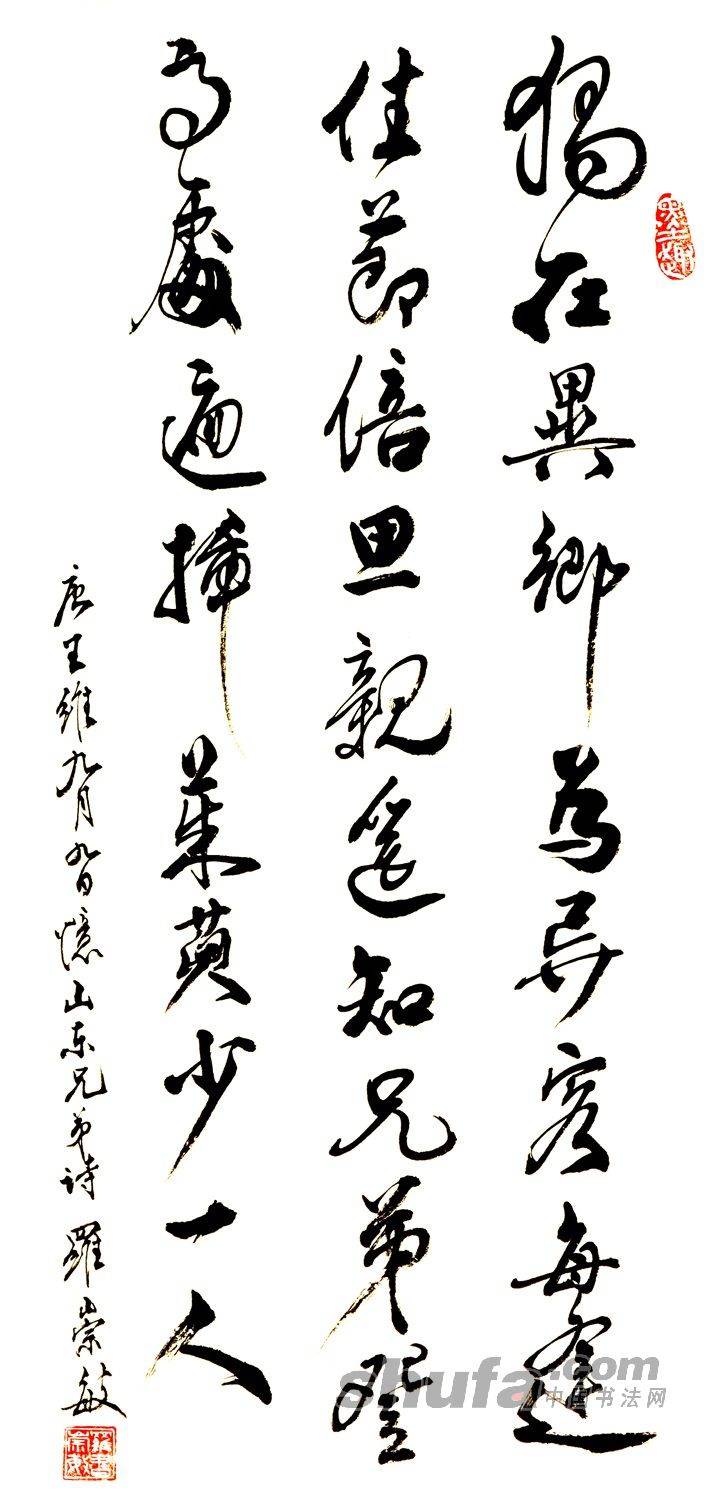 獨在異鄉為异客每逢
佳節倍思親遥知兄弟登
高處遍插茱萸少一人
唐王維九月九日憶山東兄弟诗 羅崇敏
shufa.com
中国书法网